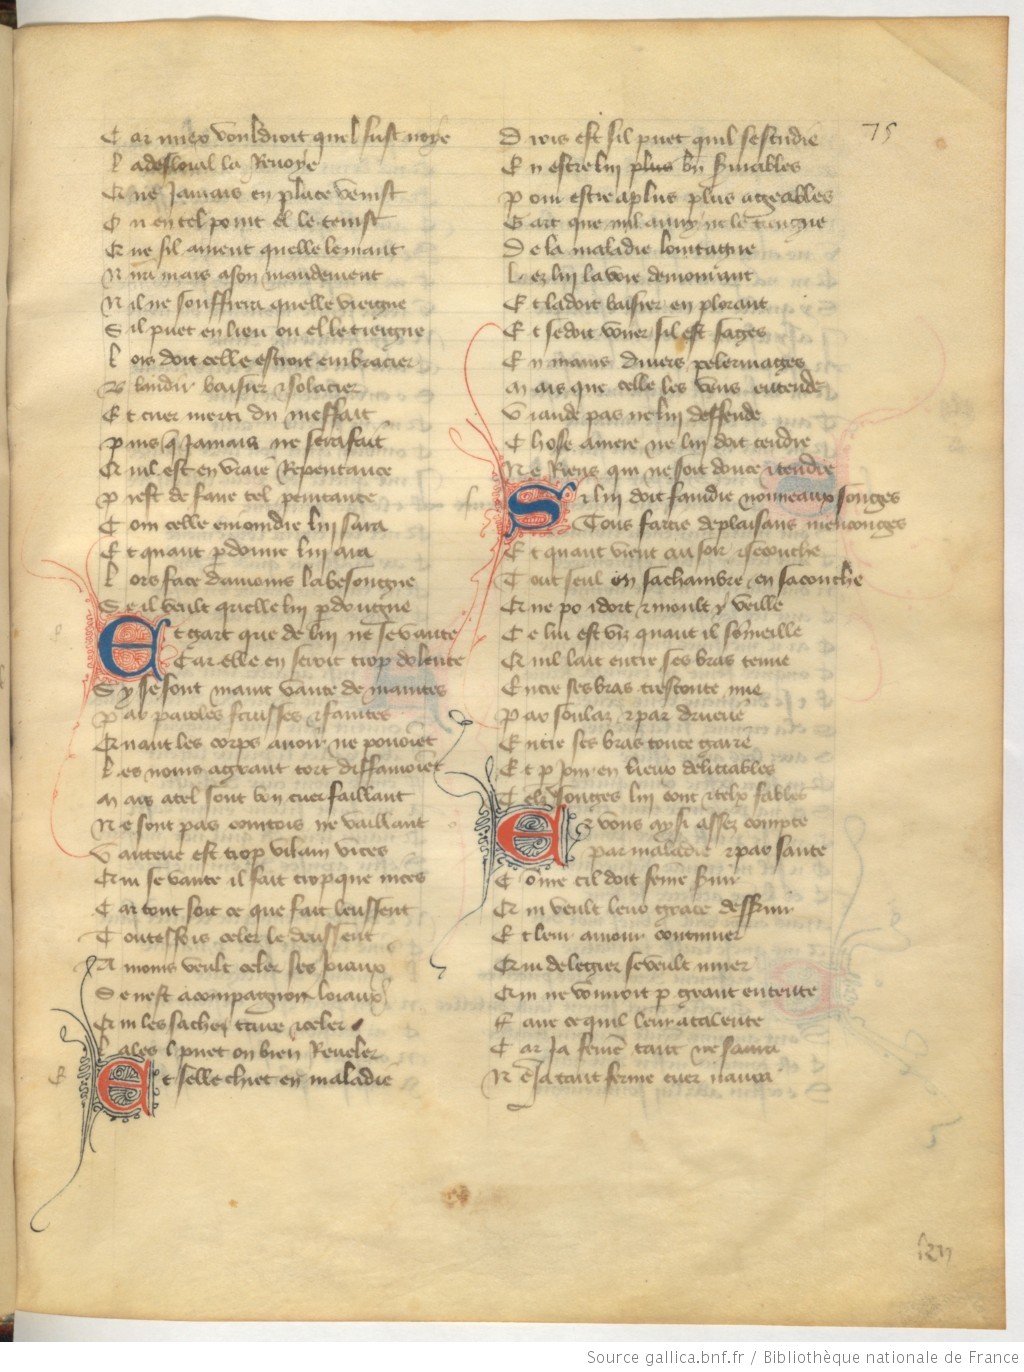 75
Car miex vouldroit quel fust noye
La desloial la renoye
Et ne Jamais en place venist
On en tel point el le tenist
Et ne sil avient quelle le mant
N ira mais a son mandement
N il ne souffrera quelle viengne
S il puet en lieu ou el le tiengne
L ors doit celle estroit embracier
B landir baisier et solacier
E t crier merci du meffait
P uis que Jamais ne sera fait
Et il est en vraie Repentance
P rest de faire tel penitance
C om celle enioindre lui sara
E t quant pdonne lui ara
L ors face damours la besoingne
S e il veult quelle lui pdoingne
Et gart que de lui ne se vante
Car elle en seroit trop dolente
S y se sont maint vante de maintes
P ar paroles fausses et faintes
Et nant les corps avoir ne povoient
L es noms a grant tort diffamoient
M ais a tel sont bon cuer faillant
N e sont pas courtois ne vaillant
V anterie est trop vilain vices
Et qui se vante il fait trop que nices
C ar tout soit ce que fait leussent
T outesfois celer le deussent
A mours veult celer ses Joiaux
S e nest a compaignon loiaux
Et qui les sache taire et celer
L a les puet on bien Reveler
Et selle chiet en maladie
D rois est sil puet quil sestudie
E n estre lui plus bn servicables
P our estre a plus plus aggeables
G art que nul anuy ne le tiengne
D e la maladie lointaigne
L ez lui la voie demourant
E t la doit baisier en plorant
E t se doit vouer sil est sages
E n mains divers pelerinages
M ais que celle les veus entende
V iande pas ne lui deffende
C hose amere ne lui doit tendre
N e Riens qui ne soit douce et tendre
Si lui doit faindre nouveaux songes
Tous farcis de plaisans mencoinges
E t quant vient au soir et se couche
T out seul en sa chambre en sa couche
Et ne po i dort et moult y veille
C e lui est viz quant il sommeille
Et il lait entre ses bras tenue
E ntre ses bras trestoute nue
P ar soulaz et par druerie
E ntre ses bras toute garie
E t p jour en lieux delitables
T elz songes lui cont et telx fables
Ez vous ay si assez compte
par maladie et par sante
C ome cil doit feme servir
Et qui veult leur grace desservir
E t leur amour continuer
Et qui de legier se veult muer
Et qui ne vouroit p grant entente
F aire ce quil leur atalente
C ar Ja feme tant ne saura
N e Ja tant ferme cuer naura